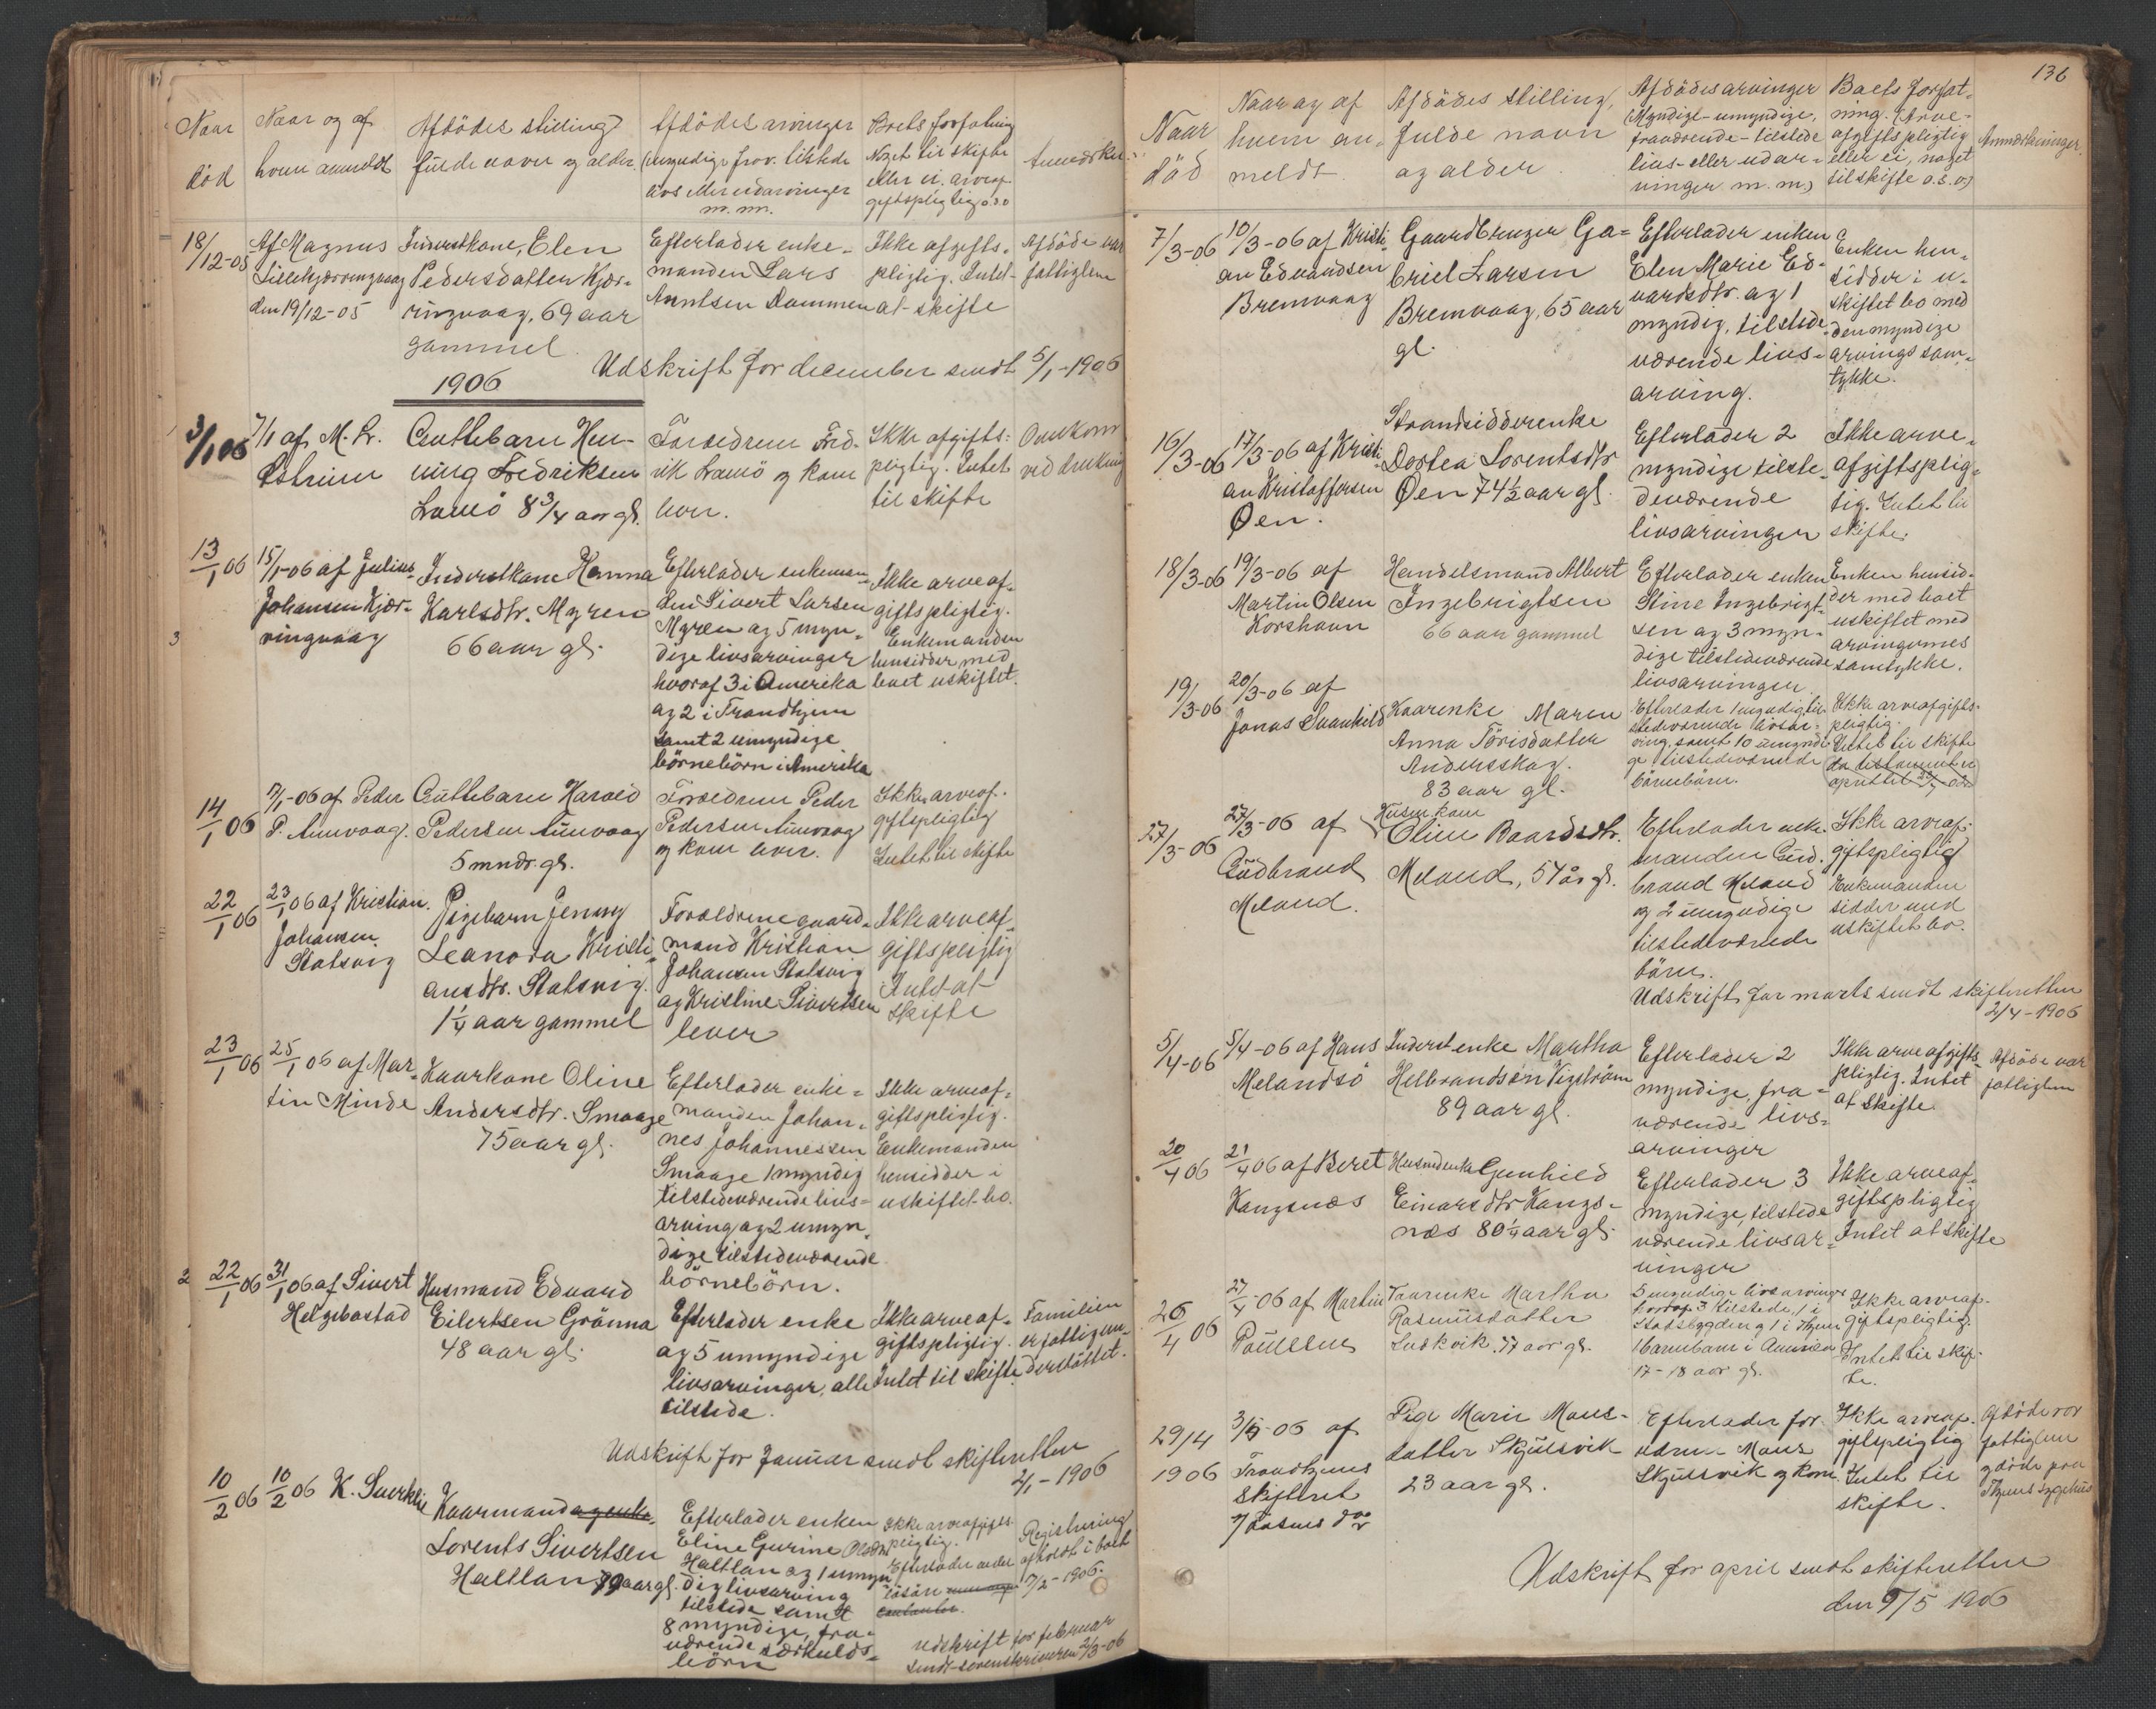 Naar
död
Naar og af
hvem anmeldt
Afdödes stilling
fulde navn og alder
Afdödes arvinger
(umyndige frav. tilstede
livs eller udarvinger
m.m.
Boets forfatning
Noget til skifte
eller ei. arveaf
giftspligtig o.s.v
Anmærkn.
18/12-05
Af Magnus
Lillekjærringvaag
den 19/12-05
Inderstkone, Elen
Pedersdatter Kjær-
ringvaag, 69 aar
gammel
Efterlader enke-
manden Lars
Arntsen Dammen
Ikke afgifts-
pligtig. Intet
at skifte
Afdöde var
fattiglem
Udskrift for december sendt 5/1-1906
1906
3/1 06
7/1 af M. Chr.
Östreim
Guttebarn Hen-
ning Fredriksen
Lamö 8 3/4 aar gl.
Forældrene Fred-
rik Lamö og kone
lever.
Ikke afgifts-
pligtig. Intet
til skifte
Omkom
ved drukning
13/1 06
15/1-06 af Julius
Johansen Kjær-
ringvaag
Inderstkone Hanna
Karlsdtr. Myren
66 aar gl.
Efterlader enkeman-
den Sivert Larsen
Myren og 5 myn-
dige livsarvinger
hvoraf 3 i Amerika
og 2 i Trondhjem
samt 2 umyndige
börnebörn i Amerika
Ikke arveaf-
giftspligtig.
Enkemanden
hensidder med
boet uskiftet.
3
14/1 06
17/1-06 af Peder
P. Aunvaag.
Guttebarn Harald
Pedersen Aunvaag
5 mndr. gl.
Forældrene Peder
Pedersen Aunvaag
og kone lever.
Ikke arveaf-
giftspligtig
Intet til skifte
22/1 06
23/1 06 af Kristian
Johansen
Stalsvig
Pigebarn Jenny
Leanora Kristi-
ansdtr. Stalsvig.
1 1/4 aar gammel
Forældrene gaard-
mand Kristian
Johansen Stalsvig
og Kristine Sivertsen
lever
Ikke arveaf-
giftspligtig
Intet at
skifte
23/1 06
25/1 06 af Mar-
tin Minde
Kaarkone Oline
Andersdtr. Smaage
75 aar gl.
Efterlader enke-
manden Johan-
nes Johannessen
Smaage 1 myndig
tilstedeværende livs-
arving og 2 umyn-
dige tilstedeværende
börnebörn.
Ikke arveaf-
giftspligtig.
Enkemanden
hensidder i
uskiftet bo.
2
22/1 06
31/1 06 af Sivert
Helgebostad
Husmand Edvard
Eilertsen Grönna
48 aar gl.
Efterlader enke
og 5 umyndige
livsarvinger, alle
tilstede.
Ikke arveaf-
giftspligtig.
Intet til skifte
Familien
er fattigun-
derstöttet.
Udskrift for Januar sendt skifteretten
2/1-1906
10/2 06
10/2 06 K. Sverkli
Kaarmand og enke
Lorents Sivertsen
Haltlan 79 aar gl.
Efterlader enken
Eline Gurine Olsdtr
Haltlan og 1 umyn-
dig livsarving
tilstede samt
8 myndige, fra-
værende særkulds-
börn
Ikke arveafgifts-
pligtig.
Efterlader endel
lösöre
Registrering
afholdt i boet
17/2-1906.
udskrift for februar
sendt sorenskriveren 2/3-06
136
Naar
död
Naar og af
hvem an-
meldt
Afdödes stilling,
fulde navn
og alder
Afdödes arvinger
(Myndige-umyndige,
fraværende-tilstede
livs- eller udar-
vinger m.m.)
Boets forfat-
ning. (Arve-
afgiftspligtig
eller ei, noget
til skifte o.s.v.)
Anmærkninger.
7/3-06
10/3-06 af Kristi-
an Edvardsen
Bremvaag
Gaardbruger Ga-
briel Larsen
Bremvaag, 65 aar
gl.
Efterlader enken
Elen Marie Ed-
vardsdtr. og 1
myndig, tilstede-
værende livs-
arving.
Enken hen-
sidder i u-
skiftet bo med
den myndige
arvings sam-
tykke.
16/3-06
17/3-06 af Kristi-
an Kristoffersen
Øen.
Strandsidderenke
Dortea Lorentsdtr
Øen 74 1/2 aar gl.
Efterlader 2
myndige tilste-
deværende
livsarvinger
Ikke arve-
afgiftsplig-
tig. Intet til
skifte.
18/3-06
19/3-06 af
Martin Olsen
Korshavn
Handelsmand Albert
Ingebrigtsen
66 aar gammel
Efterlader enken
Stine Ingebrigt-
sen og 3 myn-
dige tilstedeværende
livsarvinger
Enken hensid-
der med boet
uskiftet med
arvingernes
samtykke.
19/3-06
20/3-06 af
Jonas Svanhild
Kaarenke Maren
Anna Törisdatter
Andersskog.
83 aar gl.
Efterlader 1 myndig til-
stedeværende livsar-
ving, samt 10 umyndi-
ge tilstedeværende
börnebörn.
Ikke arveafgifts-
pligtig.
Intet til skifte
da testamente er
oprettet
27/3-06
27/3-06 af
Gudbrand
Meland.
Husm. kone
Oline Baardsdtr.
Meland, 57 år gl.
Efterlader enke-
manden Gud-
brand Meland
og 2 umyndige
tilstedeværende
börn.
Ikke arveaf-
giftspligtig
Enkemanden
sidder med
uskiftet bo.
Udskrift for marts sendt skifteretten
2/4-1906
5/4-06
5/4-06 af Hans
Melandsö
Inderstenke Martha
Helbrandsen Vigström
89 aar gl.
Efterlader 2
myndige, fra-
værende livs-
arvinger
Ikke arveafgifts-
pligtig. Intet
at skifte
Afdöde var
fattiglem
20/4 06
21/4 06 af Beret
Kongsnæs
Husmdenke Gunhild
Einarsdtr Kongs-
næs 80 1/4 aar gl.
Efterlader 3
myndige, tilstede
værende livsar-
vinger
Ikke arveaf-
giftspligtig
Intet at skifte
26/4 06
27/4-06 af Martin
Poulsen
Kaarenke Martha
Rasmusdatter
Ludkvik. 77 aar gl.
5 myndige livsarvinger
hvoraf 3 tilstede, 1 i
Stadsbygden og 1 i Thjem
1 barnebarn i Amerika
17-18 aar gl.
Ikke arveaf-
giftspligtig.
Intet til skif-
te.
29/4
1906
3/5-06 af
Trondhjems
Skifteret
Pige Marie Mons-
datter Skjulsvik
23 aar gl.
Efterlader for-
ældrene Mons
Skjulsvik og kone.
Ikke arveaf-
giftspligtig
Intet til
skifte.
Afdöde var
fattiglem
og döde paa
Thjems sygehus
Udskrift for april sendt skifteretten
den 9/5 1906